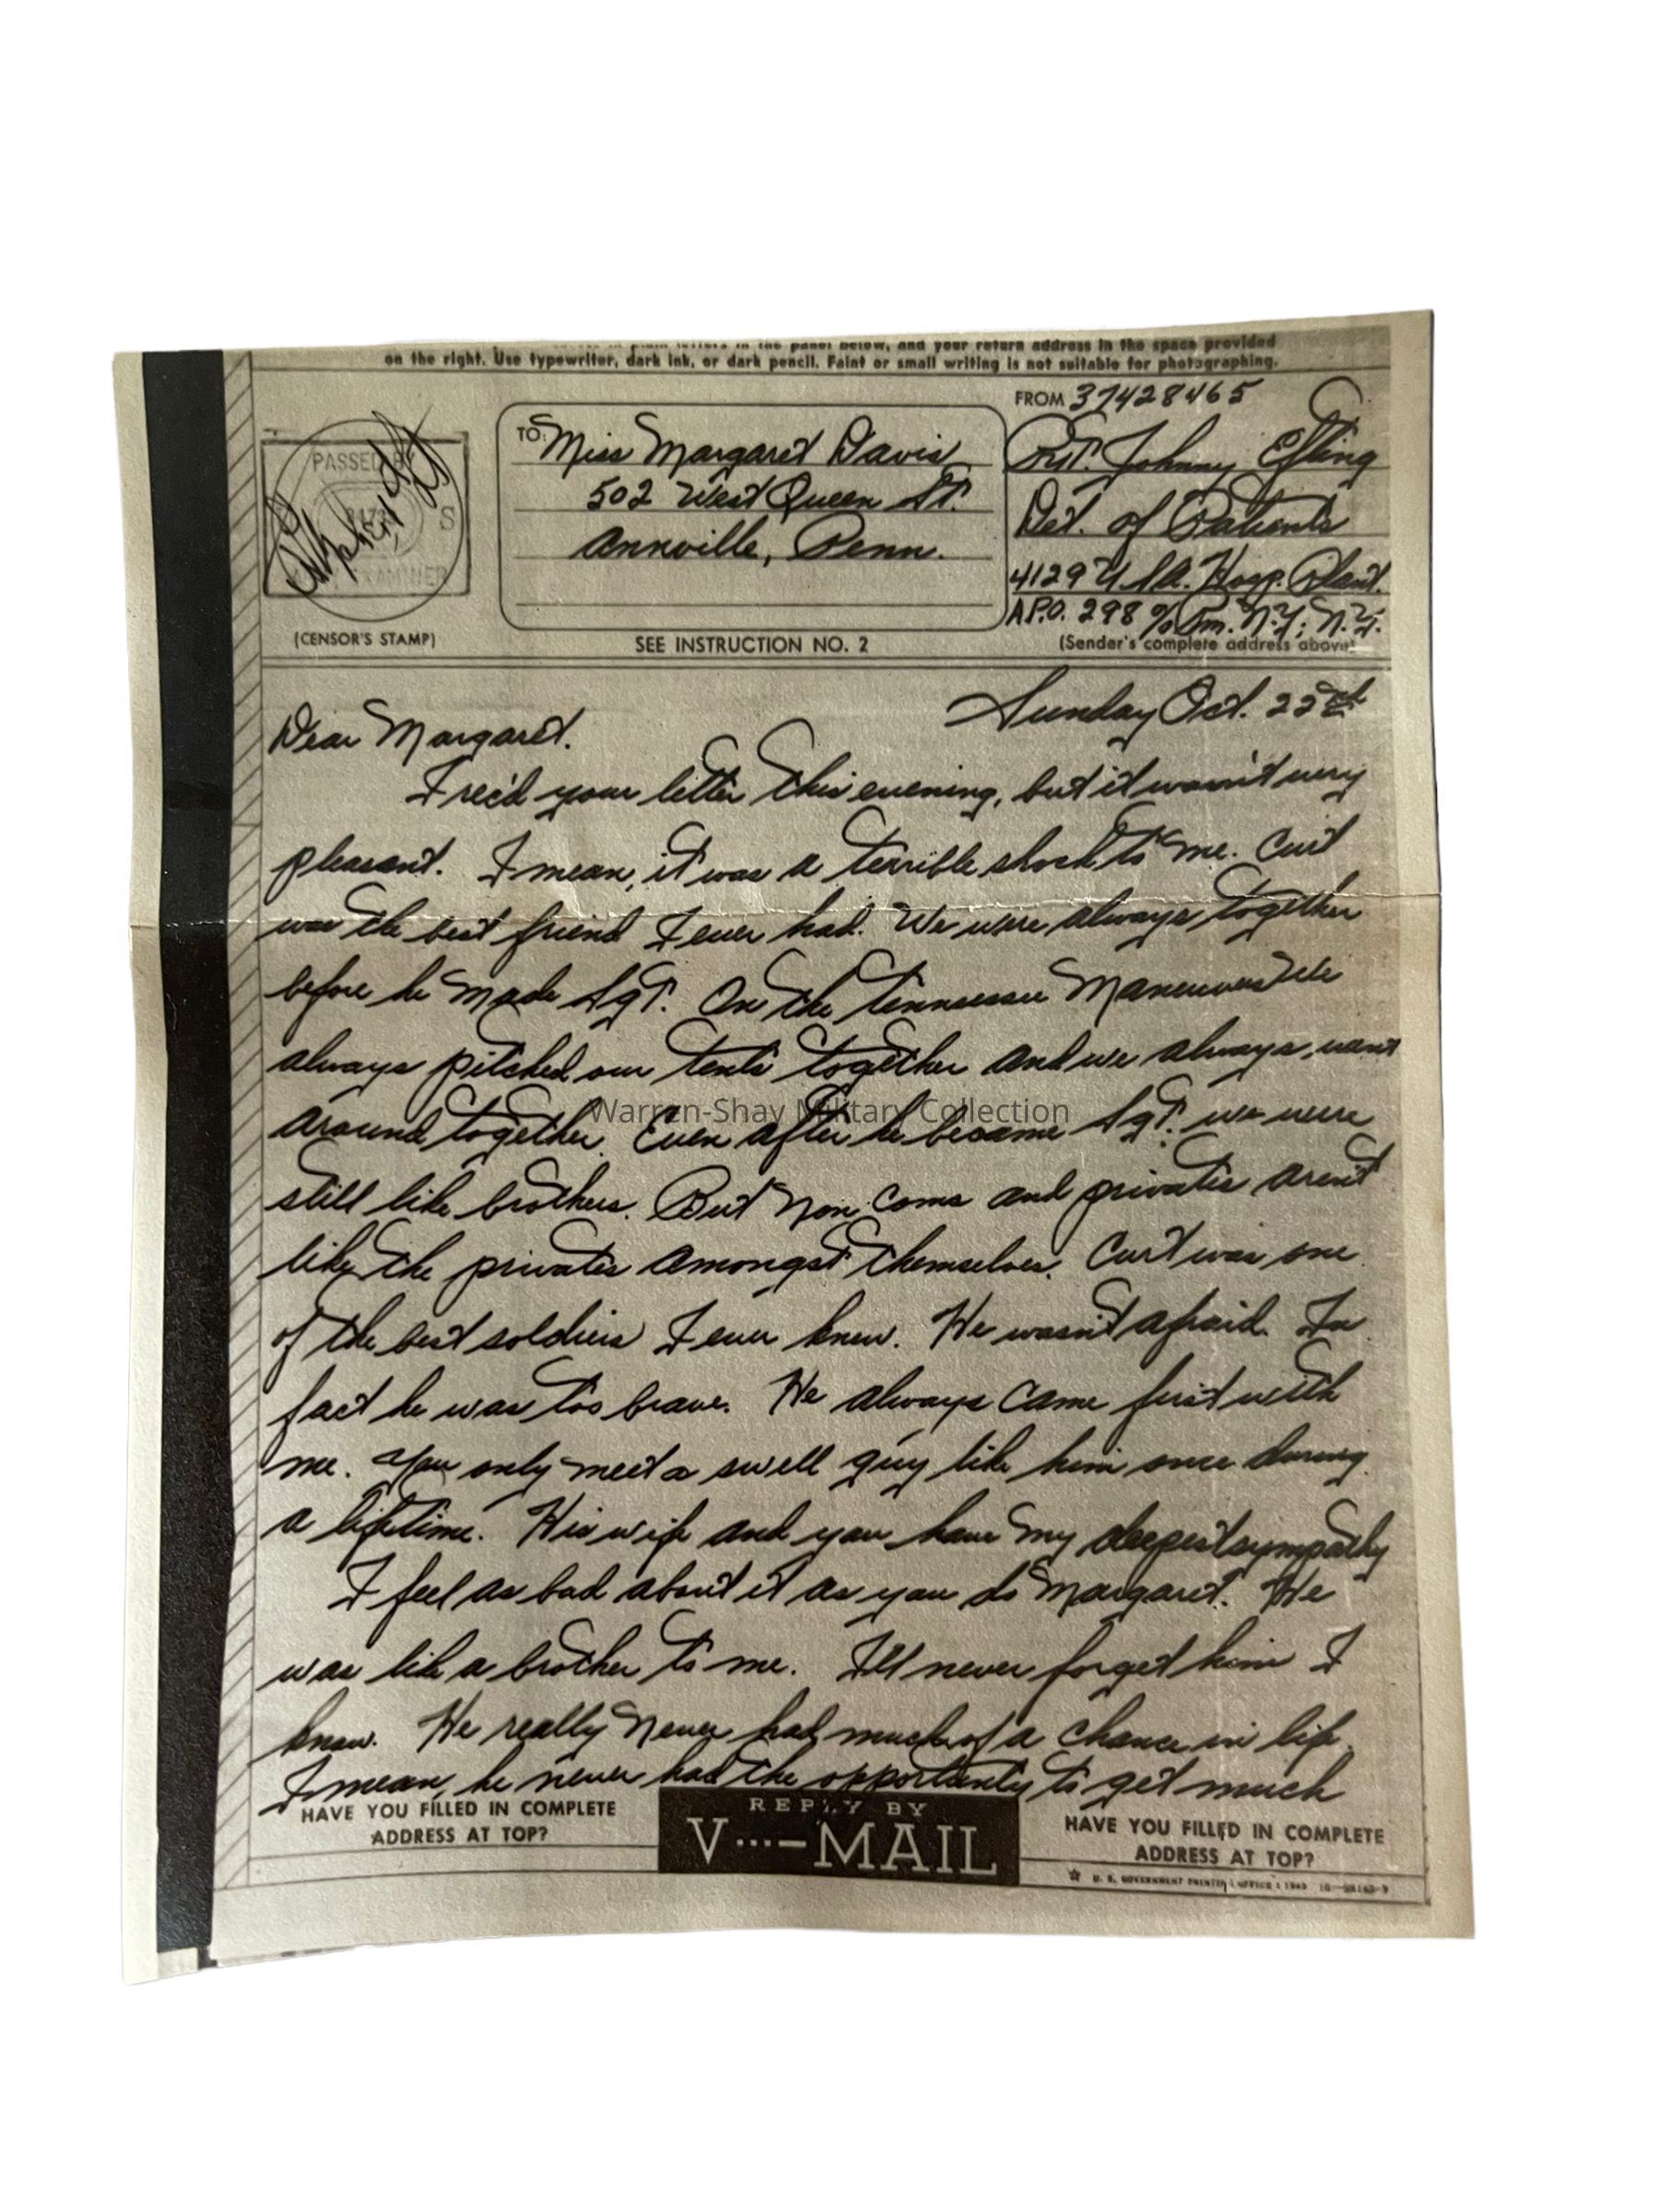 in the panel below, and your return address in the space provided
on the right. Use typewriter, dark ink, or dark pencil. Faint or small writing is not suitable for photographing.
FROM 37428465
TO: Miss Margaret Davis
502 West Queen St.
Annville, Penn.
Pvt. Johnny Efling
Det. of Patients
4129 U.S.A. Hosp. Plant.
A.P.O. 298 % Pm. N.Y; N.Y.
(Sender's complete address above)
PASSED BY
S
ARMY EXAMINER
(CENSOR'S STAMP)
SEE INSTRUCTION NO. 2
Sunday Oct. 22
Dear Margaret.
I rec'd your letter this evening, but it wasn't very
pleasant. I mean, it was a terrible shock to me. Curt
was the best friend I ever had. We were always together
before he made Sgt. On the Tennessee Maneuvers We
always pitched our tents together and we always went
around together. Even after he became Sgt. we were
still like brothers. But Non Coms and privates aren't
like the privates amongst themselves. Curt was one
of the best soldiers I ever knew. He wasn't afraid. In
fact he was too brave. He always came first with
me. You only meet a swell guy like him once during
a lifetime. His wife and you have my deepest sympathy
I feel as bad about it as you do Margaret. He
was like a brother to me. I'll never forget him I
know. He really never had much of a chance in life.
I mean, he never had the opportunity to get much
Warren-Shay Military Collection
HAVE YOU FILLED IN COMPLETE
ADDRESS AT TOP?
REPLY BY
V···—MAIL
HAVE YOU FILLED IN COMPLETE
ADDRESS AT TOP?
U. S. GOVERNMENT PRINTING OFFICE : 1943